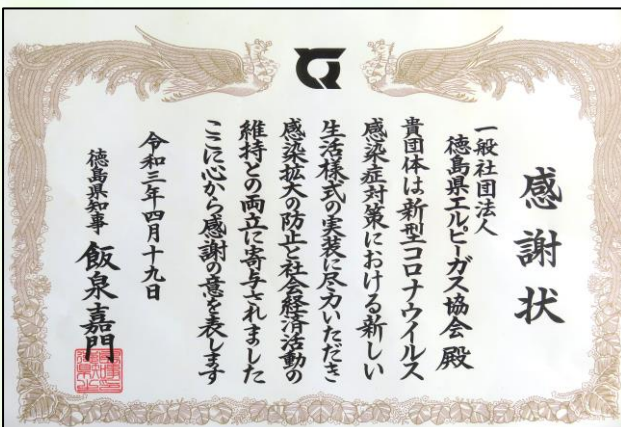 感謝状
一般社団法人
徳島県エルピーガス協会 殿
貴団体は新型コロナウイルス
感染症対策における新しい
生活様式の実装に尽力いただき
感染拡大の防止と社会経済活動の
維持との両立に寄与されました
ここに心から感謝の意を表します
令和三年四月十九日
徳島県知事 飯泉嘉門